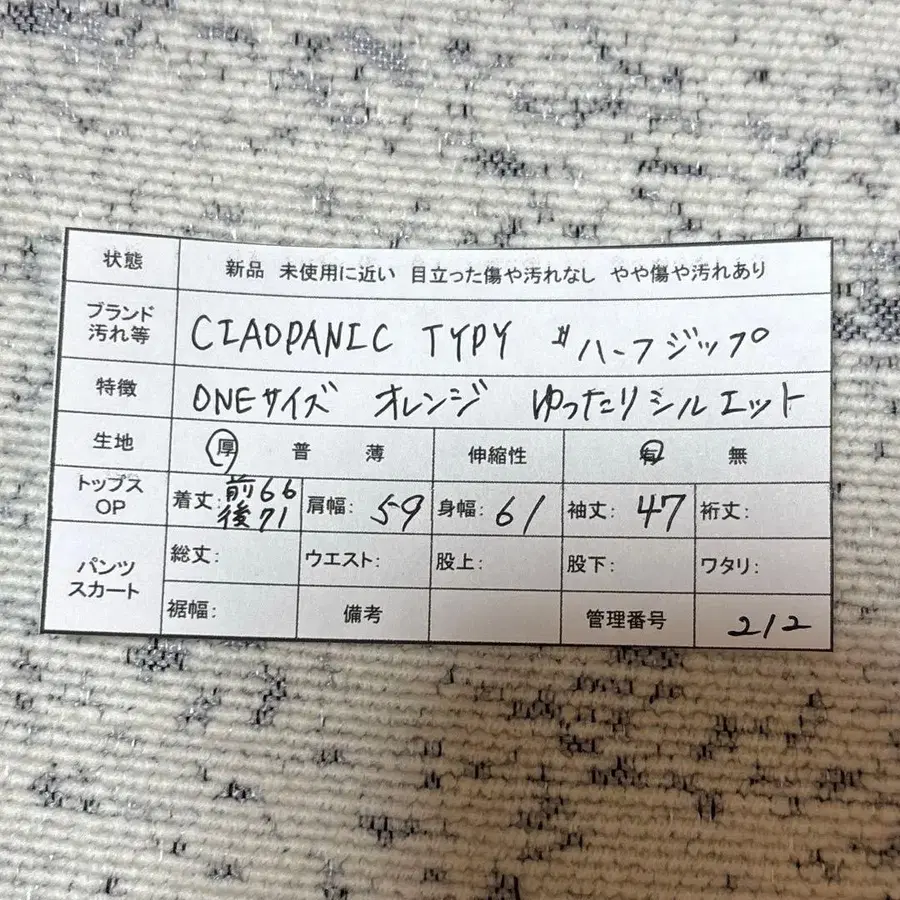 状態 新品 未使用に近い 目立った傷や汚れなし やや傷や汚れあり
ブランド
汚れ等 CIAOPANIC TYPY ハーフジップ
特徴 ONEサイズ オレンジ ゆったりシルエット
生地 厚 普 薄 伸縮性 有 無
トップス
OP 着丈:前66
後71 肩幅: 59 身幅: 61 袖丈: 47 裄丈:
パンツ
スカート 総丈: ウエスト: 股上: 股下: ワタリ:
裾幅: 備考 管理番号 212